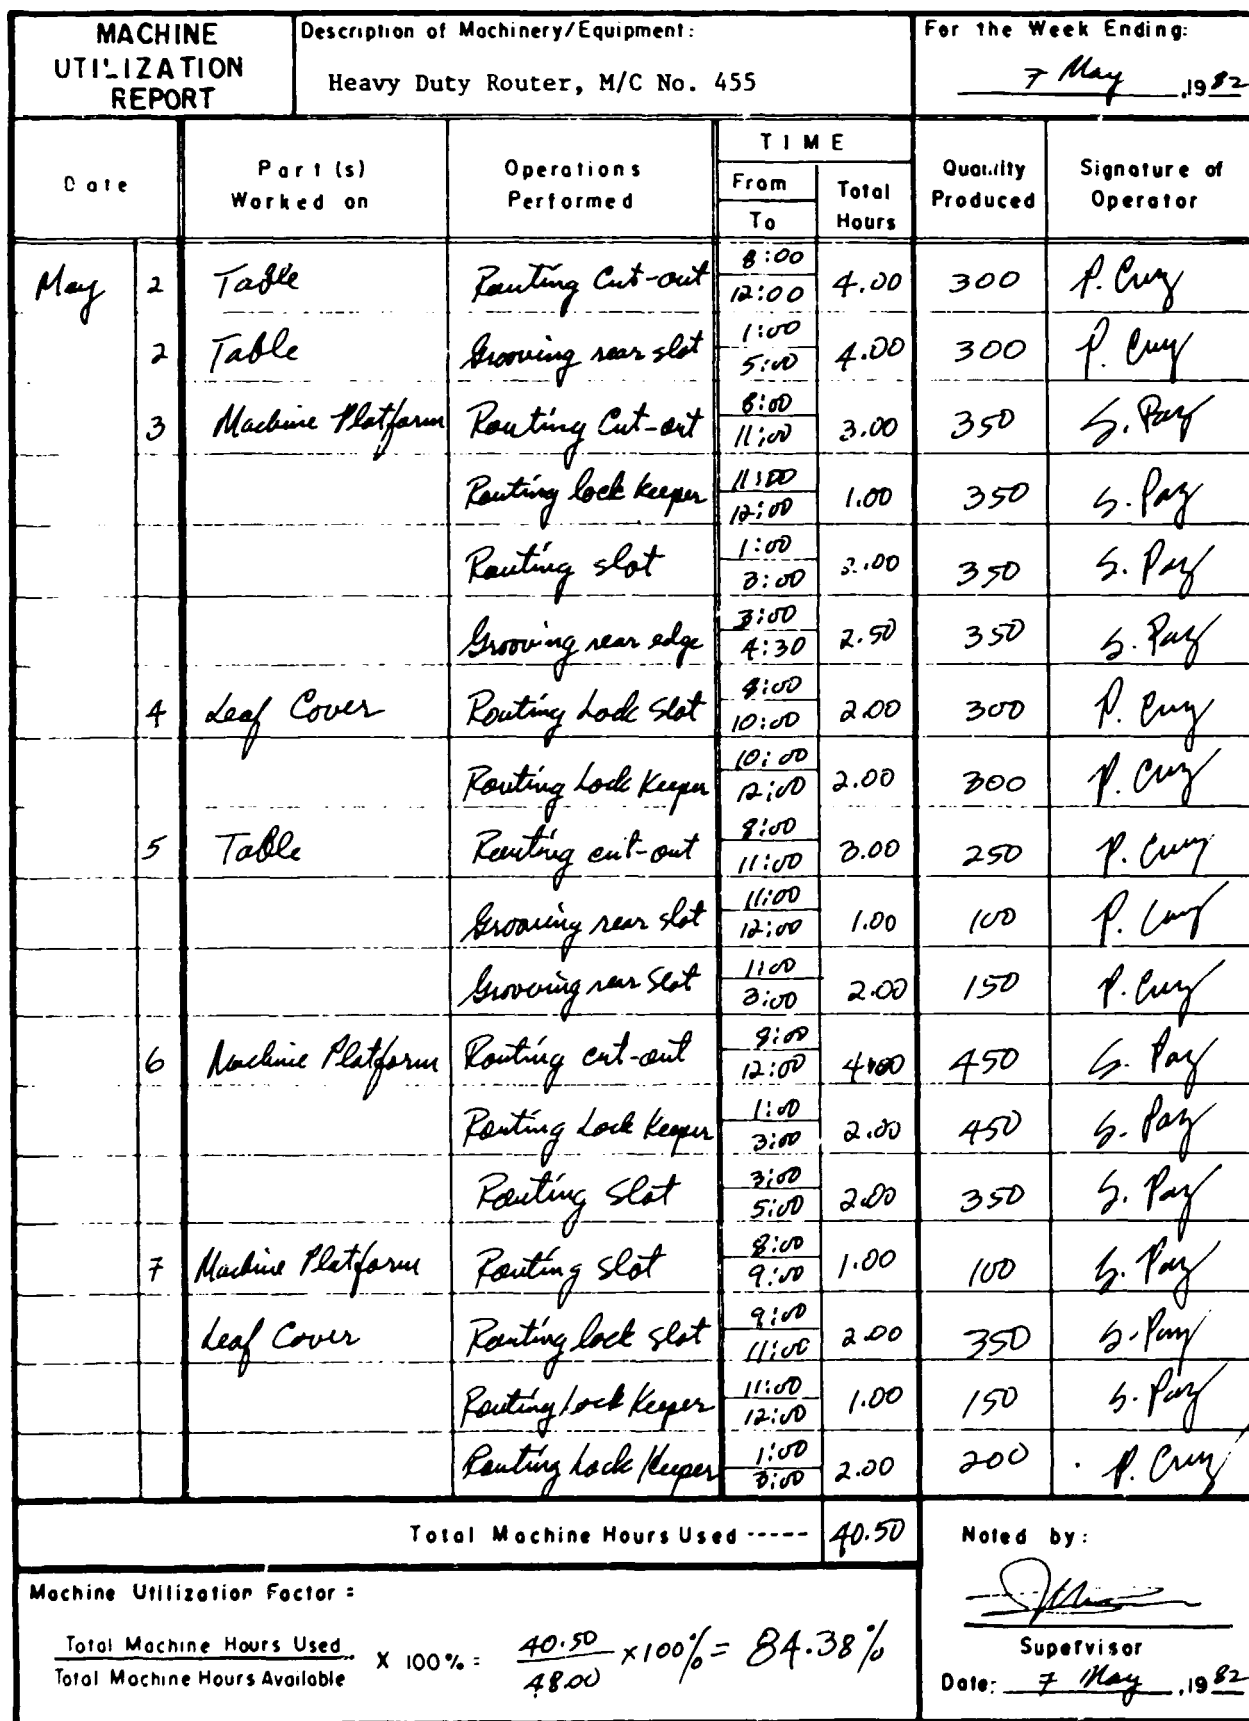 MACHINE UTILIZATION REPORT
Description of Machinery/Equipment:
Heavy Duty Router, M/C No. 455
For the Week Ending:
7 May, 1982
Date
Part(s) Worked on
Operations Performed
TIME
From
To
Total Hours
Quantity Produced
Signature of Operator
May 2 Table Routing Cut-out 8:00 12:00 4.00 300 P. Cruz
2 Table Grooving rear slot 1:00 5:00 4.00 300 P. Cruz
3 Machine Platform Routing Cut-out 8:00 11:00 3.00 350 S. Paz
Routing lock keeper 11:00 12:00 1.00 350 S. Paz
Routing slot 1:00 3:00 2.00 350 S. Paz
Grooving rear edge 3:00 4:30 2.50 350 S. Paz
4 Leaf Cover Routing Lock Slot 8:00 10:00 2.00 300 P. Cruz
Routing Lock Keeper 10:00 12:00 2.00 300 P. Cruz
5 Table Routing cut-out 8:00 11:00 3.00 250 P. Cruz
Grooving rear slot 11:00 12:00 1.00 100 P. Cruz
Grooving rear Slot 1:00 3:00 2.00 150 P. Cruz
6 Machine Platform Routing cut-out 8:00 12:00 4.00 450 S. Paz
Routing Lock Keeper 1:00 3:00 2.00 450 S. Paz
Routing Slot 3:00 5:00 2.00 350 S. Paz
7 Machine Platform Routing slot 8:00 9:00 1.00 100 S. Paz
Leaf Cover Routing lock slot 9:00 11:00 2.00 350 S. Paz
Routing Lock Keeper 11:00 12:00 1.00 150 S. Paz
Routing Lock Keeper 1:00 3:00 2.00 200 P. Cruz
Total Machine Hours Used ----- 40.50
Noted by:
Machine Utilization Factor =
Total Machine Hours Used / Total Machine Hours Available X 100% = 40.50 / 48.00 x 100% = 84.38%
Supervisor
Date: 7 May, 1982